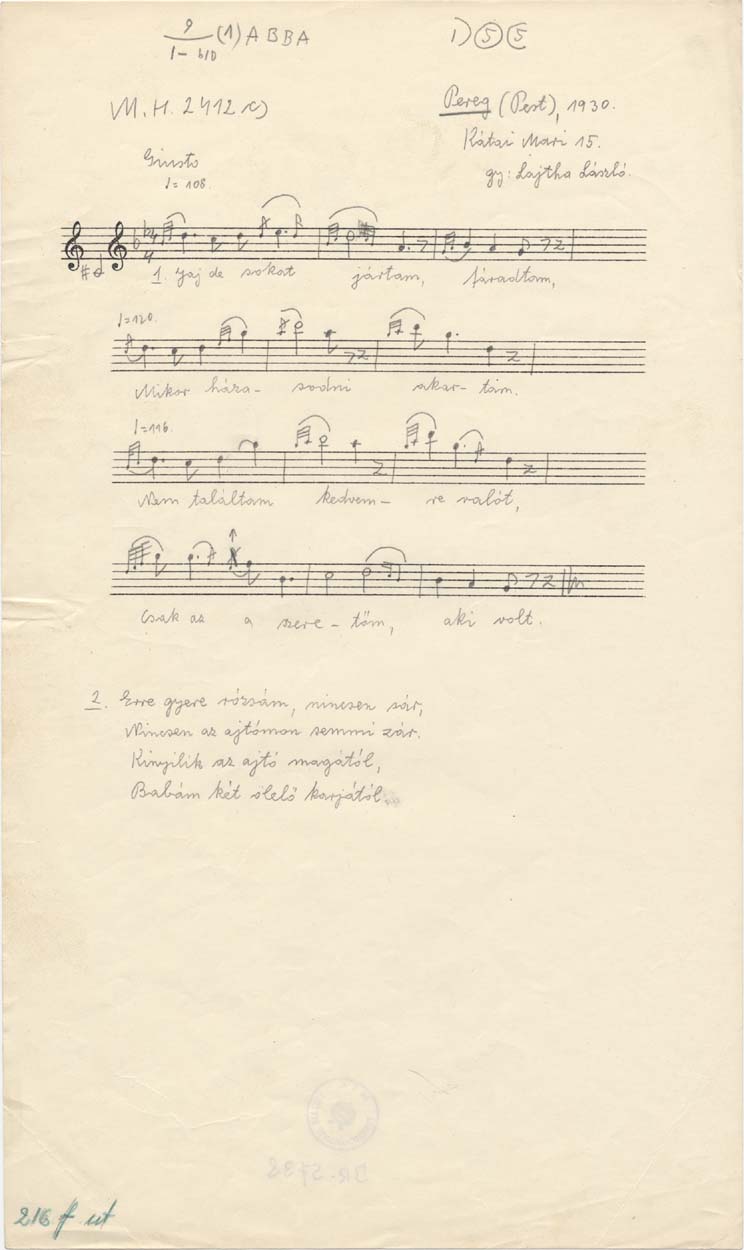 9 (1) A B B A
1 – b10
1) 5 5
M. H. 2412 c)
Pereg (Pest), 1930.
Kátai Mari 15.
gy: Lajtha László.
Giusto
♩= 108.
1. Jaj de sokat jártam, fáradtam,
♩=120.
Mikor háza- sodni akar- tam.
♩=116.
Nem találtam kedvem- re valót,
Csak az a szere- tőm, aki volt.
2. Erre gyere rózsám, nincsen sár,
Nincsen az ajtómon semmi zár.
Kinyilik az ajtó magától,
Babám két ölelő karjától.
216 f ut